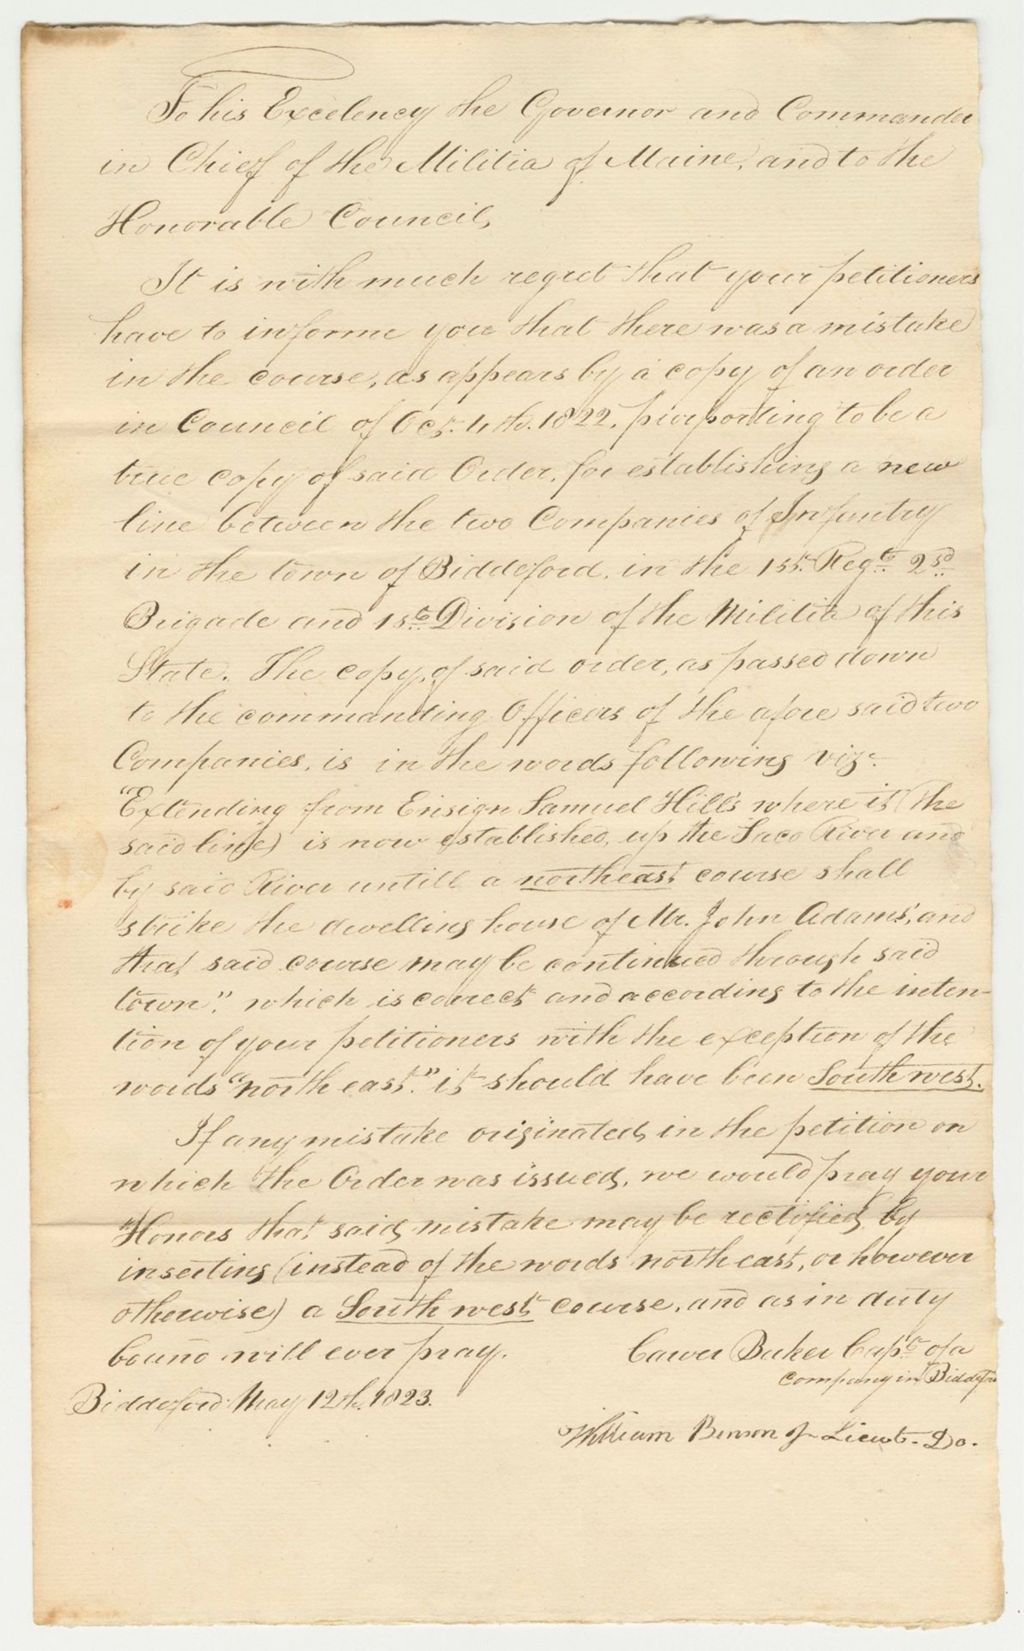 To his Excelency the Governor and Commander
in Chief of the Militia of Maine, and to the
Honorable Council,
It is with much regret that your petitioners
have to informe you that there was a mistake
in the course, as appears by a copy of an order
in Council of Oct. 4th. 1822, purporting to be a
true copy of said Order, for establishing a new
line between the two Companies of Infantry
in the town of Biddeford, in the 1st. Regt. 2nd
Brigade and 1st Division of the Militia of this
State. The copy, of said order, as passed down
to the commanding Officers of the afore said two
Companies, is in the words following viz.
"Extending from Ensign Samuel Hill's where it (the
said line) is now established, up the Saco River and
by said River untill a northeast course shall
strike the dwelling house of Mr. John Adams', and
that said course may be continued through said
town." which is correct and according to the inten-
tion of your petitioners with the exception of the
words "north east." it should have been South west.
If any mistake originated, in the petition on
which the Order was issued, we would pray your
Honors that said, mistake may be rectified, by
inserting (instead of the words north east, or however
otherwise) a South west course, and as in duty
bound will ever pray.
Baker Capt. of a
company in
Biddeford May 12th. 1823.
William Lieut. Do.